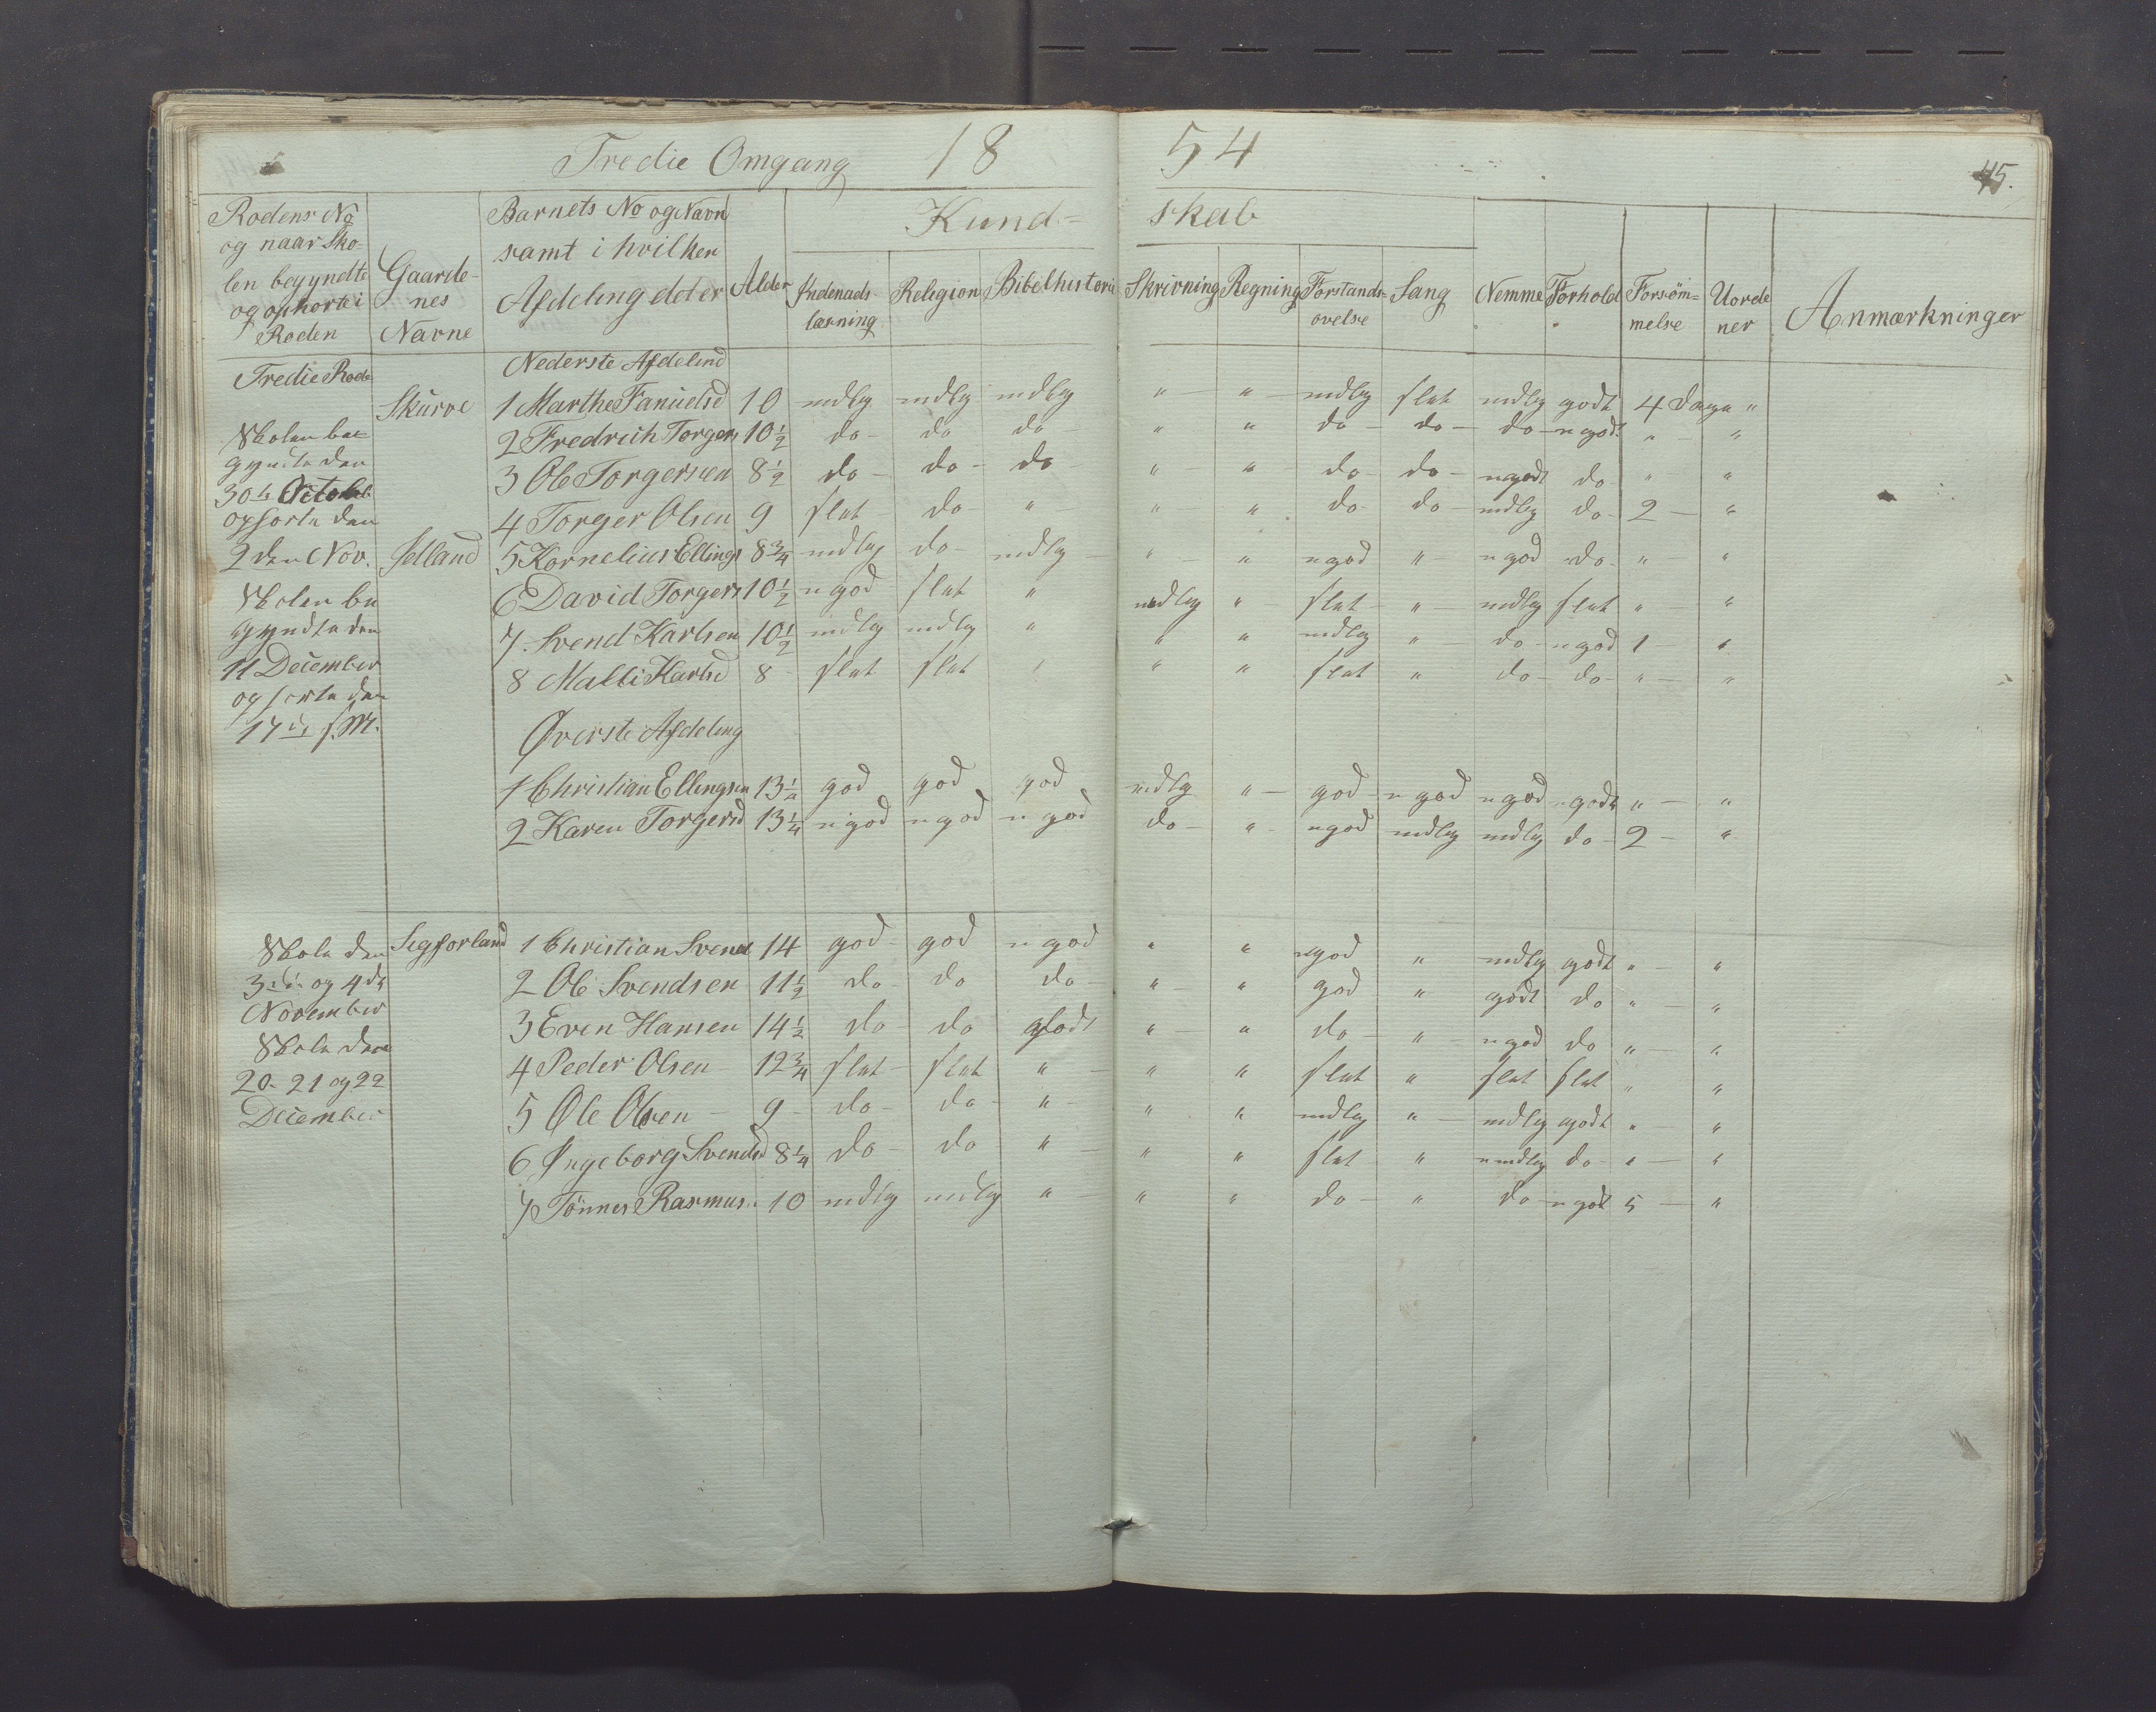 Tredie Omgang 18 54
45.
Rodens No og naar Sko- len begyndte og ophorte i Roden
Gaarde- nes Navne
Barnets No og Navn samt i hvilken Afdeling det er
Alder
Kund= skab
Indenads læsning
Religion
Bibelhistorie
Skrivning
Regning
Forstands- ovelse
Sang
Nemme
Forhold
Forsøm= melse
Uorde ner
Anmærkninger
Tredie Rode
Nederste Afdeling
Skurve 1 Marthe Fanuelsd 10 mdlg mdlg mdlg " " mdlg slet mdlg godt 4 Dage "
2 Fredrich Torgers 10 1/2 do do do " " do do do ngodt " "
3 Ole Torgersen 8 1/2 do do do " " do do ngodt do " "
4 Torger Olsen 9 slet do " " " do do mdlg do 2 "
Selland 5 Kornelius Ellings 8 3/4 mdlg do mdlg " " ngod " ngod do " "
6 David Torgers 10 1/2 ngod slet " mdlg " slet " mdlg slet " "
7 Svend Karlsen 10 1/2 mdlg mdlg " " " mdlg " do ngod 1 "
8 Malli Karlsd 8 slet slet " " " slet " do do " "
Skolen be=
gyndte den
30te October
ophorte den
2den Nov.
Skolen be
gyndte den
11 December
ophorte den
17de s.M.
Øverste Afdeling
1 Christian Ellingsen 13 1/2 god god god mdlg " god ngod ngod ngodt " "
2 Karen Torgersd 13 1/4 ngod ngod ngod do " ngod mdlg mdlg do 2 "
Skole den
3die og 4de
November
Skole den
20. 21 og 22
December
Segforland 1 Christian Svends 14 god god ngod " " ngod " mdlg godt " "
2 Ole Svendsen 11 1/2 do do do " " god " godt do " "
3 Even Hansen 14 1/2 do do godt " " do " ngod do " "
4 Peder Olsen 12 3/4 slet slet " " " slet " slet slet " "
5 Ole Olsen 9 do do " " " mdlg " mdlg godt " "
6 Ingeborg Svendsd 8 1/4 do do " " " slet " umdlg do " "
7 Tönnes Rasmus. 10 mdlg mdlg " " " do " do ngodt 5 "